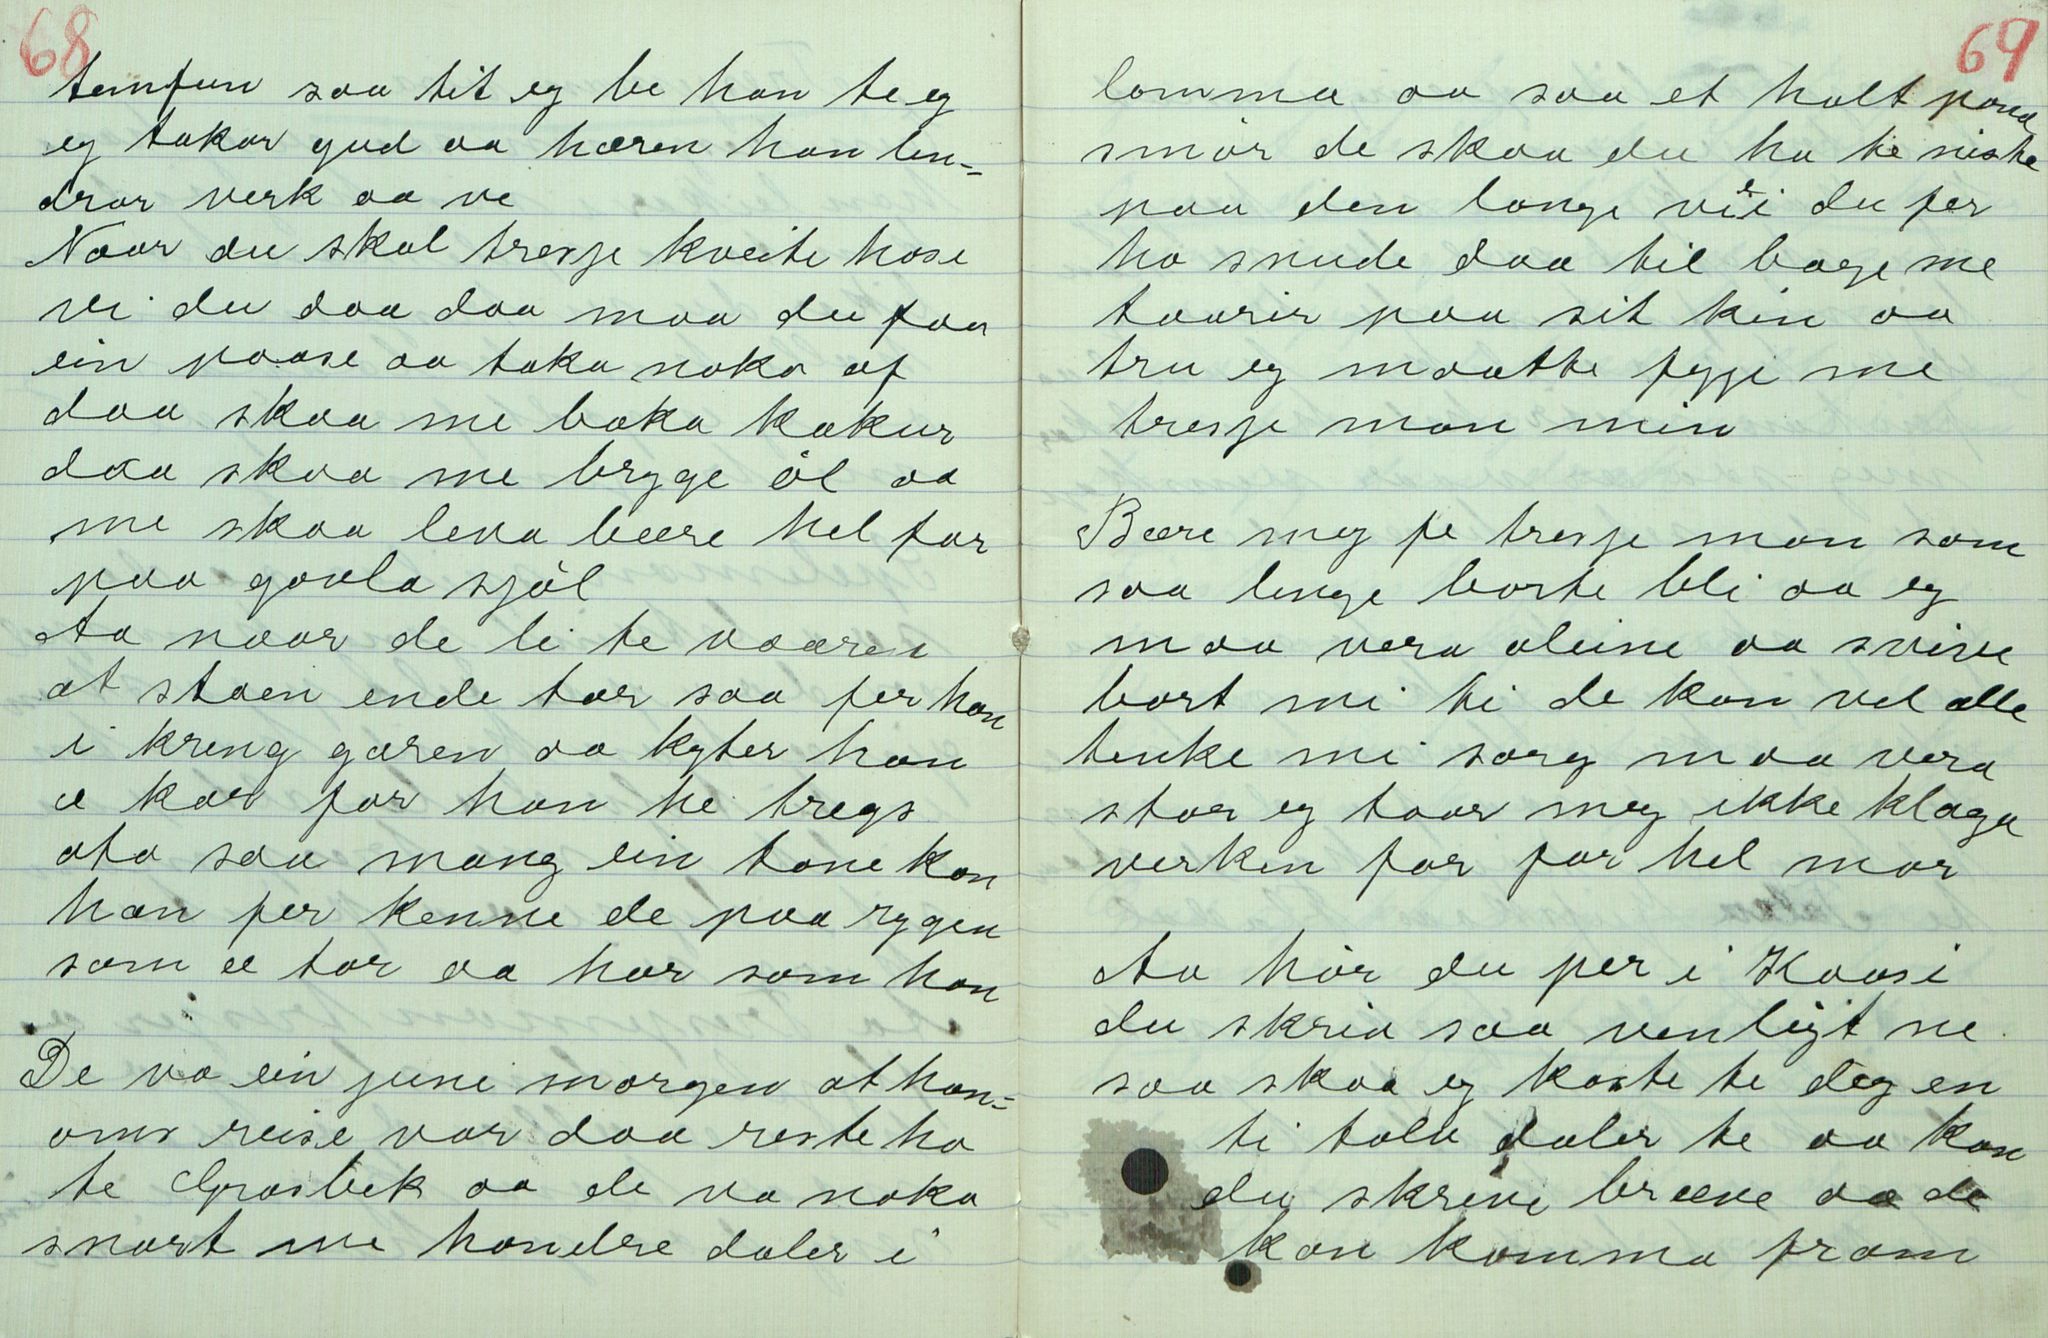 68
temfun saa tit eg be han te eg
eg takar gud aa hæren han lin-
drar verk aa ve
Naar du skal tresje kveite hose
vi du daa daa maa du faa
ein paase aa taka noka af
daa skaa me baka kakur
daa skaa me bryge øl aa
me skaa leva bære hel før
paa gavla sjøl
Aa naar de li te vaaren
at staen ende tar saa fer han
i kreng garen aa kyter han
æ kar for han he tregs
ata saa mang ein tone kan
han fer kenne de paa rygen
som æ tar aa har som han
De va ein juni morgen at han-
oms reise var daa reste ha
te Grosbek aa de va noka
snart me hondre daler i
69
lomma aa saa et halt pond
smør de skaa du ha te niste
paa den lange veei du fer
ha snude daa til bage me
taarir paa sit kin aa
tru eg maatte fygje me
tresje man min
Bære meg fe tresje man som
saa lenge borte bli aa eg
maa vera aleine aa svive
bort mi ti de kan vel alle
tenke mi sorg maa vera
stor eg taar meg ikke klaga
verken for far hel mor
Aa hør du per i Kaasi
du skria saa venligt ne
saa skaa eg kaste te deg en
ti talu daler te aa kan
du skrive breve aa de
kan komma fram